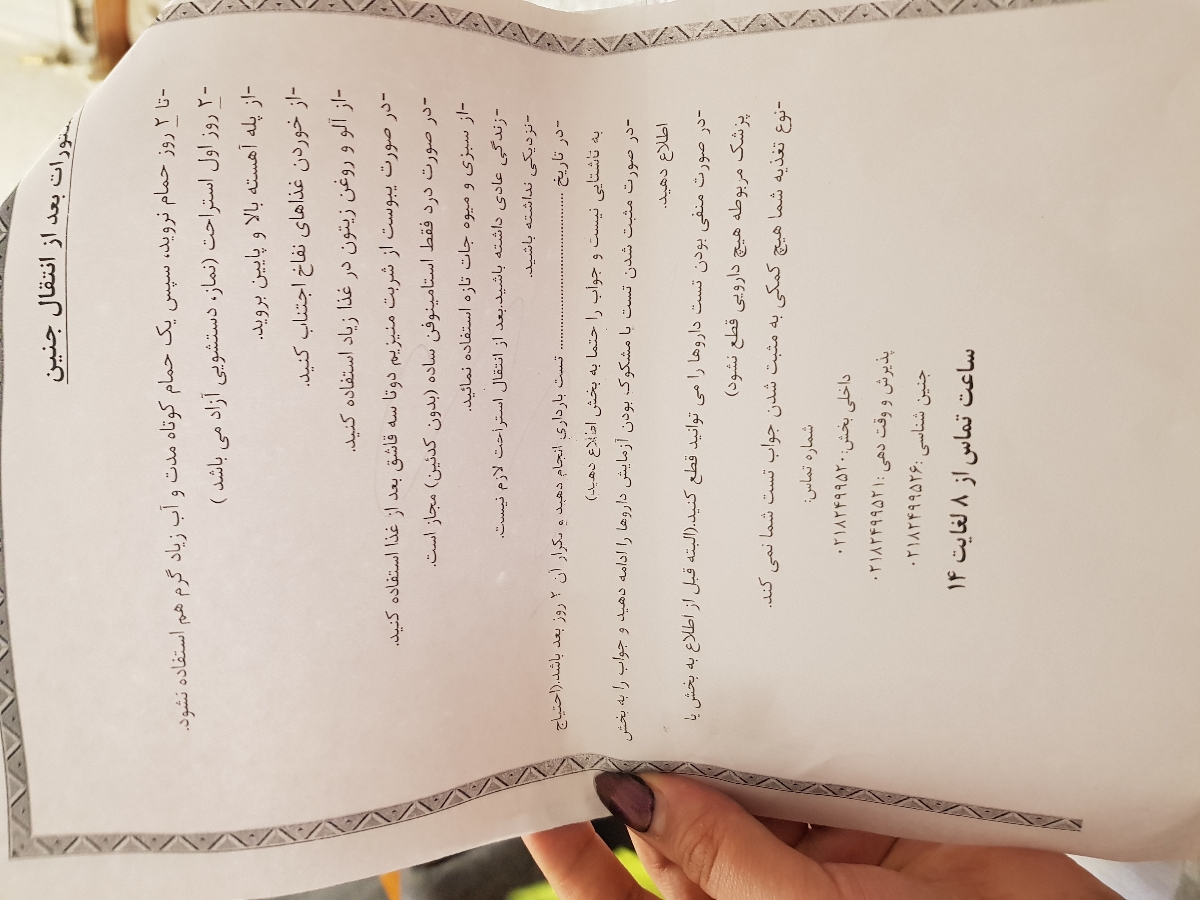 دستورات بعد از انتقال جنین
-تا ۲ روز حمام نروید، سپس یک حمام کوتاه مدت و آب زیاد گرم هم استفاده نشود.
-۲ روز اول استراحت (نماز، دستشویی آزاد می باشد )
-از پله آهسته بالا و پایین بروید.
-از خوردن غذاهای نفاخ اجتناب کنید.
-از آلو و روغن زیتون در غذا زیاد استفاده کنید.
-در صورت یبوست از شربت منیزیم دوتا سه قاشق بعد از غذا استفاده کنید.
-در صورت درد فقط استامینوفن ساده (بدون کدئین) مجاز است.
-از سبزی و میوه جات تازه استفاده نمائید.
-زندگی عادی داشته باشید.بعد از انتقال استراحت لازم نیست.
-نزدیکی نداشته باشید.
-در تاریخ ........................ تست بارداری انجام دهید و تکرار آن ۲ روز بعد باشد.(احتیاج
به ناشتایی نیست و جواب را حتما به بخش اطلاع دهید)
-در صورت مثبت شدن تست یا مشکوک بودن آزمایش داروها را ادامه دهید و جواب را به بخش
اطلاع دهید.
-در صورت منفی بودن تست داروها را می توانید قطع کنید.(البته قبل از اطلاع به بخش یا
پزشک مربوطه هیچ دارویی قطع نشود)
-نوع تغذیه شما هیچ کمکی به مثبت شدن جواب تست شما نمی کند.
شماره تماس:
داخلی بخش:۰۲۱۸۲۴۹۹۵۲۰
پذیرش و وقت دهی :۰۲۱۸۲۴۹۹۵۲۱
جنین شناسی :۰۲۱۸۲۴۹۹۵۲۶
ساعت تماس از ۸ لغایت ۱۴